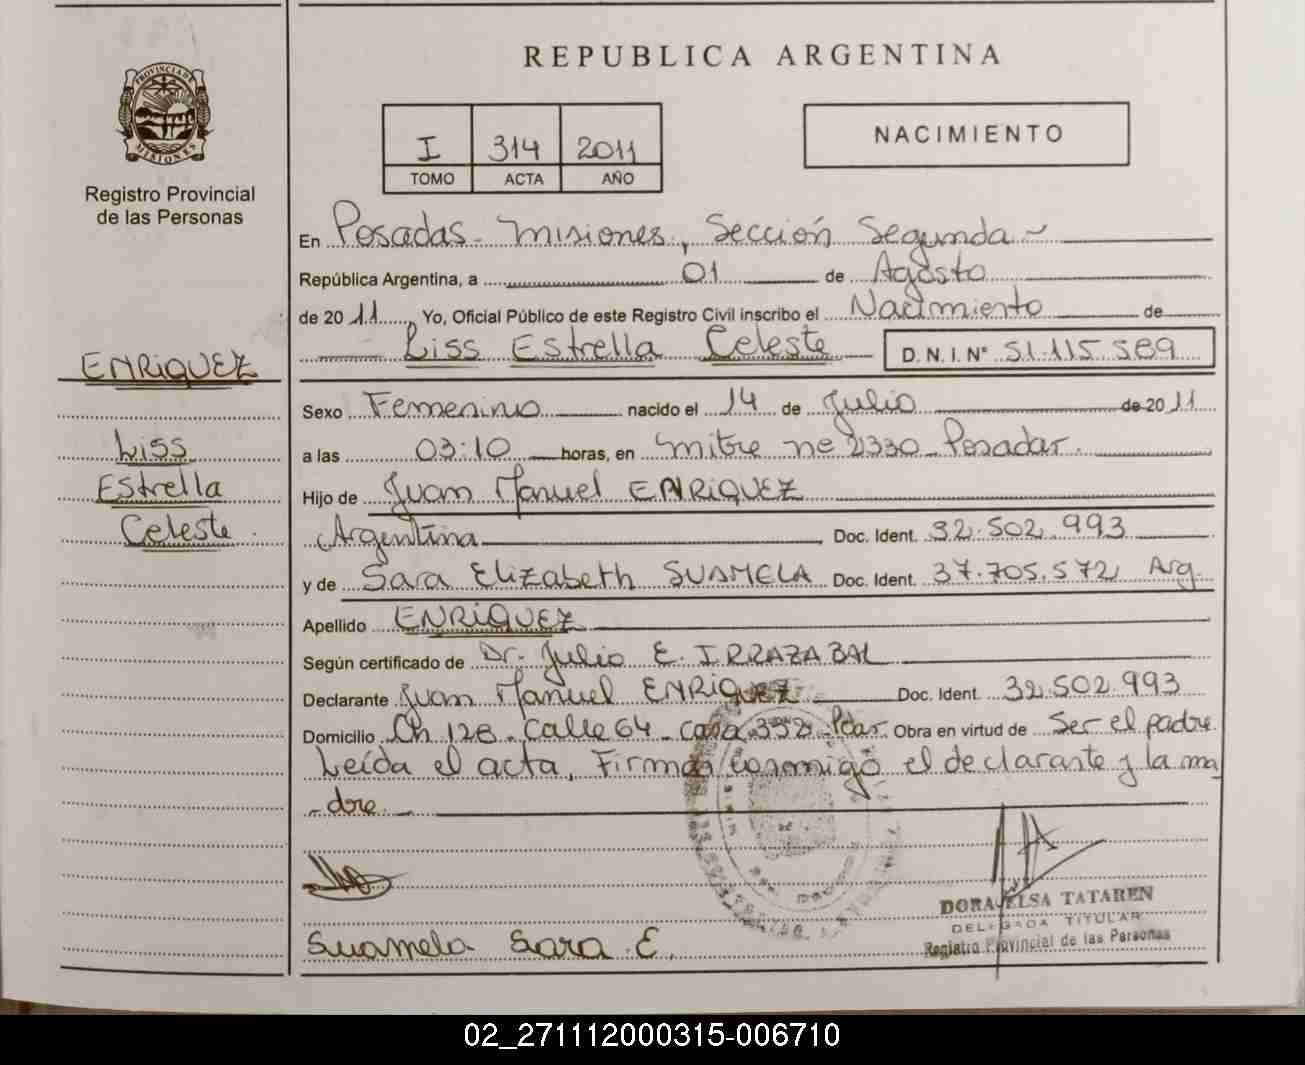 PROVINCIA DE
MISIONES
Registro Provincial
de las Personas
ENRIQUEZ
Liss
Estrella
Celeste
REPUBLICA ARGENTINA
I 314 2011
TOMO ACTA AÑO
NACIMIENTO
En Posadas - Misiones, Sección Segunda
República Argentina, a 01 de Agosto
de 2011 Yo, Oficial Público de este Registro Civil inscribo el Nacimiento de
Liss Estrella Celeste D.N.I.Nº 51.115.589
Sexo Femenino nacido el 14 de Julio de 2011
a las 03:10 horas, en Mitre nº 2330 Posadas.
Hijo de Juan Manuel ENRIQUEZ
Argentina Doc. Ident. 32.502.993
y de Sara Elizabeth SUAMELA Doc. Ident. 37.705.572 Arg.
Apellido ENRIQUEZ
Según certificado de Dr. Julio E. IRRAZABAL
Declarante Juan Manuel ENRIQUEZ Doc. Ident. 32.502.993
Domicilio Ch 128 - Calle 64 - Casa 332 - Pdas. Obra en virtud de Ser el padre
Leída el acta, Firman conmigo el declarante y la ma
-dre.
DORA ELSA TATAREN
DELEGADA TITULAR
Registro Provincial de las Personas
Suamela Sara E.
02_271112000315-006710